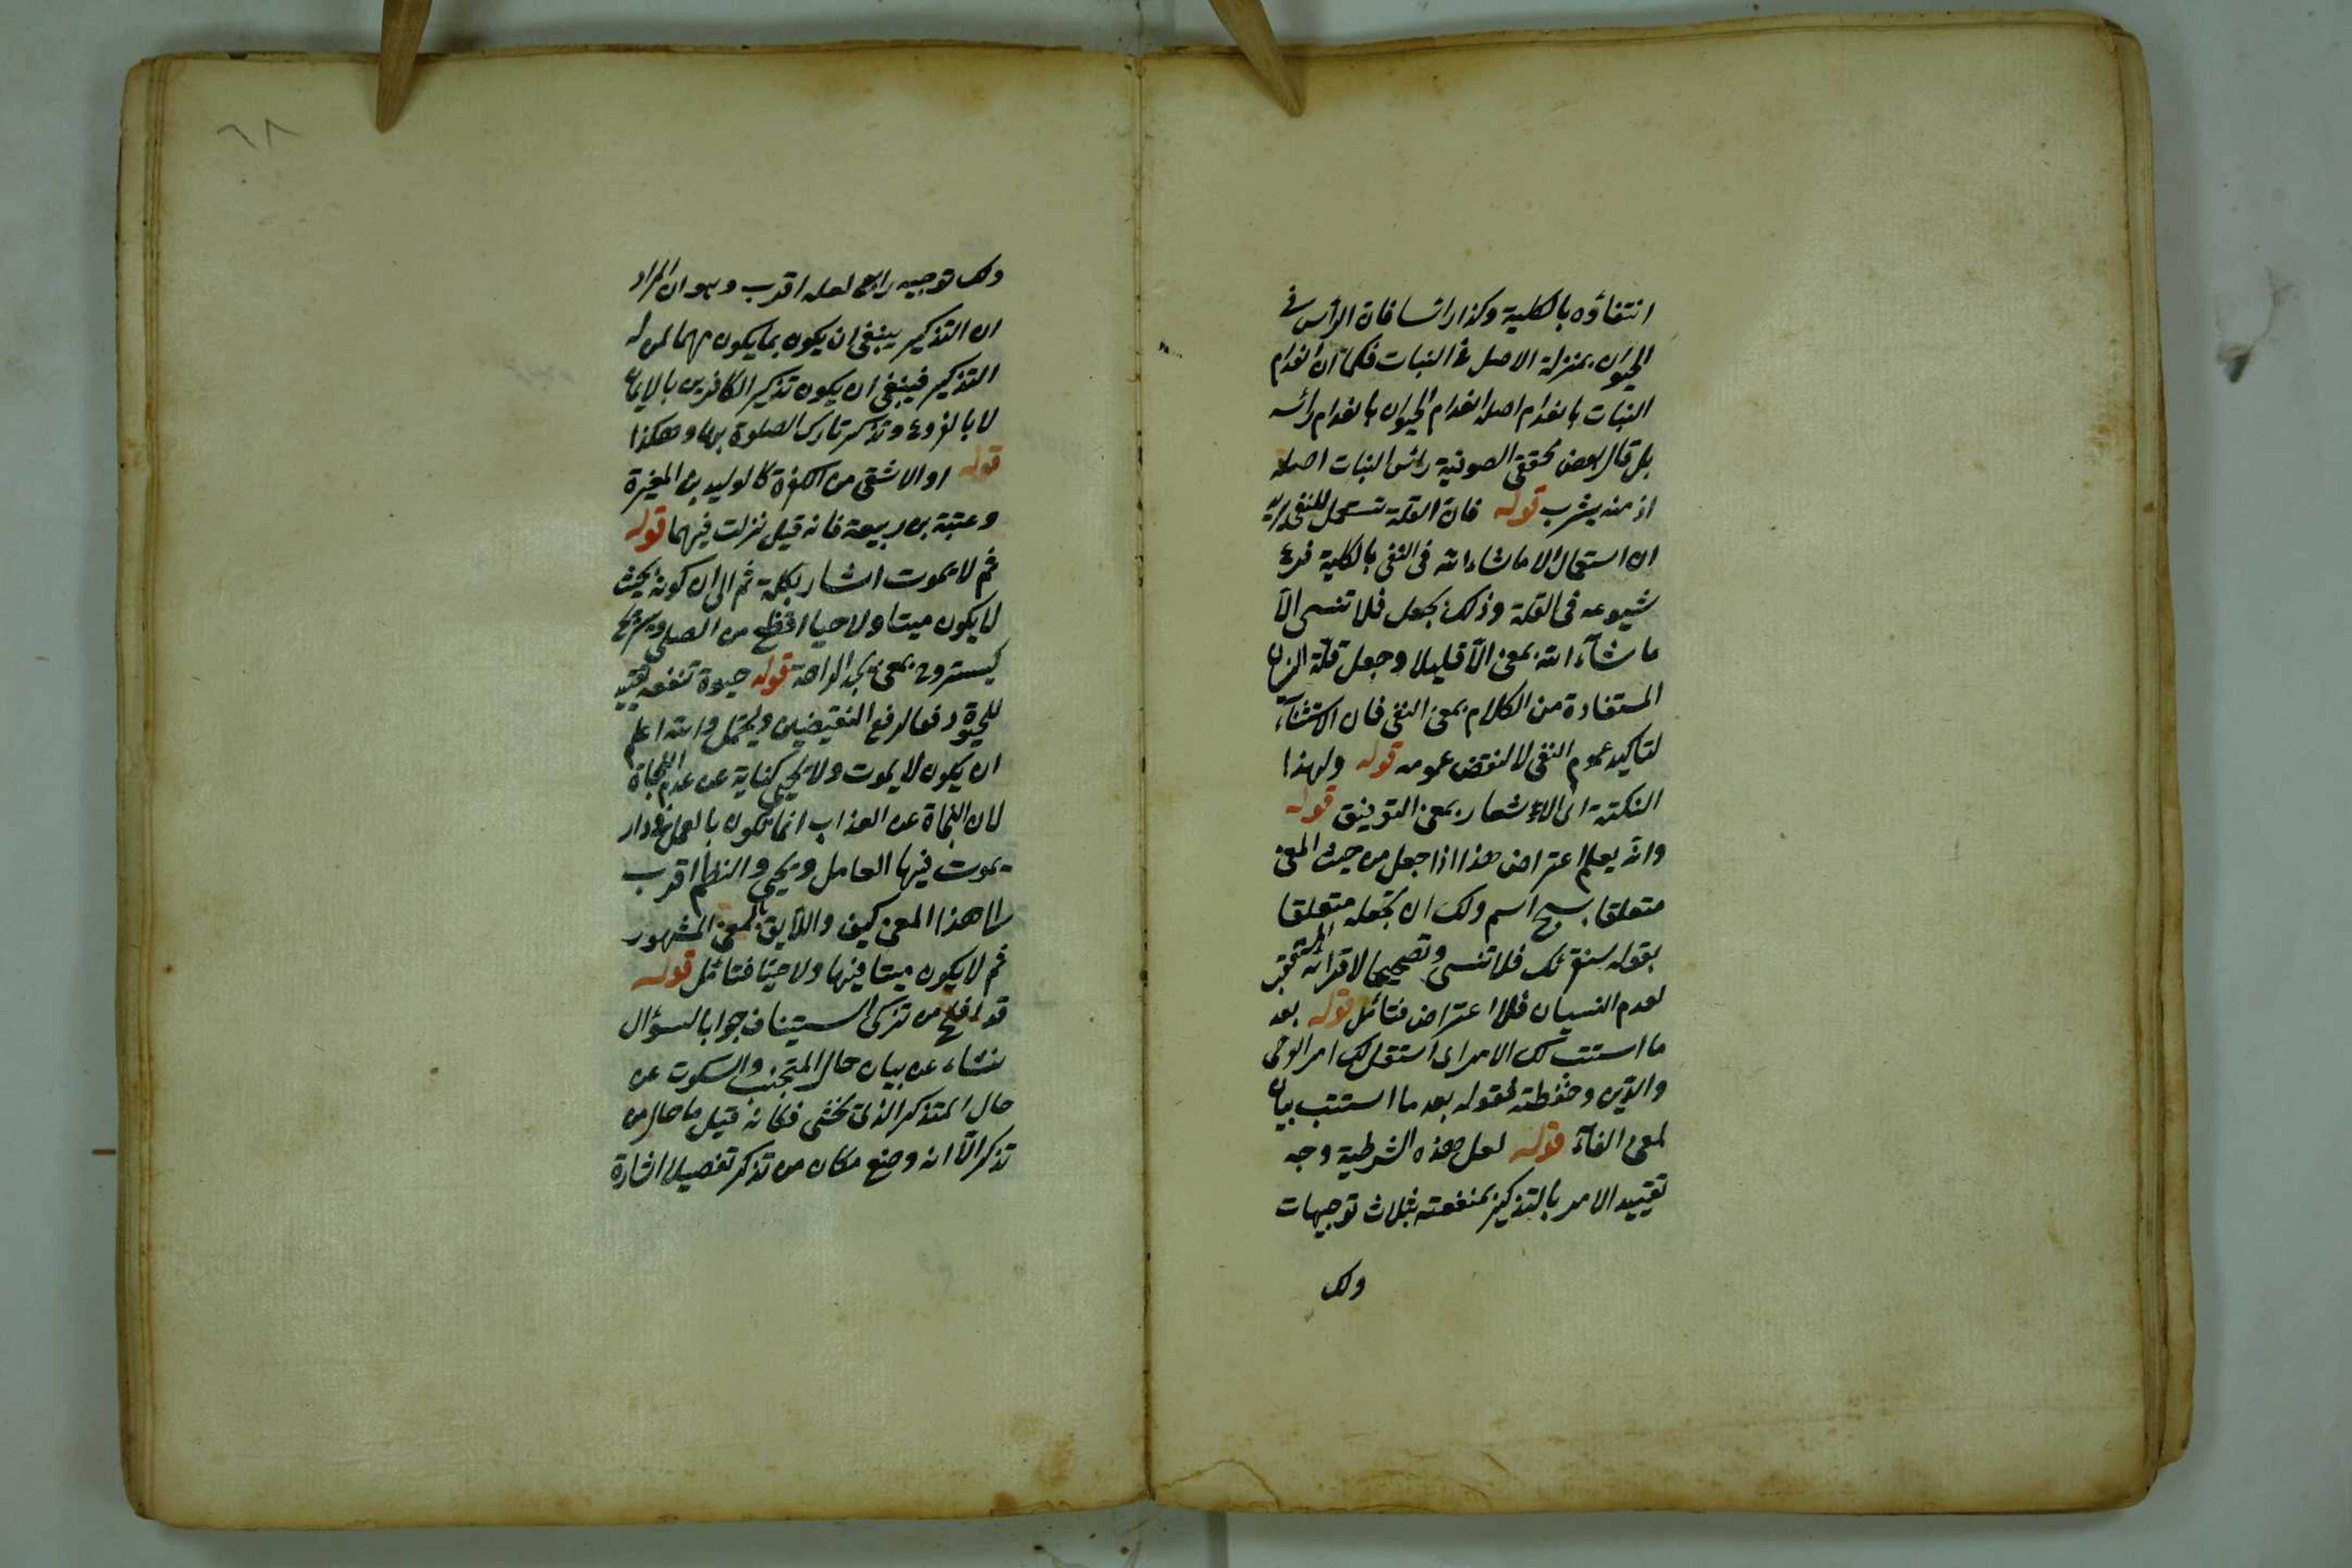 انتفاؤه بالكلية وكذا راسا فان الرأس فى
الحيوان بمنزلة الاصل فى النبات فكما ان انعدام
النبات بانعدام اصله انعدام الحيوان بانعدام رأسه
بل قال بعض محققى الصوفية رأس النبات اصله
اذ منه يشرب قوله فان القلة تستعمل للنفى يريد
ان استعمال الا ما شاء الله فى النفى بالكلية فرع
شيوعه فى القلة وذلك بجعل فلا تنسى الا
ما شآء الله بمعنى الّا قليلا وجعل قلّة
المستفادة من الكلام بمعنى النفى فان الاستثنآء
لتاكيد عموم النفى لا لنقض عمومه قوله ولهذا
النكتة اى الاشعار بمعنى التوفيق قوله
وانه يعلم اعتراض هذا اذا جعل من حيث المعنى
متعلقا بسبح اسم ولك ان تجعله متعلقا
بقوله سنقرئك فلا تنسى وتصحيحا لاقرائه المستعقب
لعدم النسيان فلا اعتراض فتامل قوله بعد
ما استتب لك الامر اى استقل لك امر الوحى
والدين وحفظته فقوله بعد ما استتب بيان
لمعنى الفآء قوله لعل هذه الشرطية وجه
تقييد الامر بالتذكير بمنفعته بثلاث توجيهات
ولك
٦٨
ولك توجيه رابع لعله اقرب وهو ان المراد
ان التذكير ينبغى ان يكون بما يكون مهما لمن له
التذكير فينبغى ان يكون تذكير الكافرين بالايمان
لا بالفروع وتذكير تارك الصلوة بها وهكذا
قوله او الاشقى من الكفرة كالوليد بن المغيرة
وعتبة بن ربيعة فانه قيل نزلت فيهما قوله
ثم لا يموت اشار بكلمة ثم الى ان كونه بحيث
لا يكون ميتا ولا حيا افظع من الصلى
ليستروح بمعنى يجد الراحة قوله حيوة تنفعه تقييد
للحيوة دفعا لرفع النقيضين ويحتمل والله اعلم
ان يكون لا يموت ولا يحيى كناية عن عدم النجاة
لان النجاة عن العذاب انما تكون بالعمل فى دار
يموت فيها العامل ويحيى والنظم اقرب
الى هذا المعنى كيف واللايق بالمعنى المشهور
ثم لا يكون ميتا فيها ولا حيّا فتامّل قوله
قد افلح من تزكى استيناف جوابا لسؤال
نشاء عن بيان حال المتجنب والسكوت عن
حال المتذكر الذى يخشى فكانه قيل ما حال من
تذكر الّا انه وضع مكان من تذكر تفصيلا اشارة